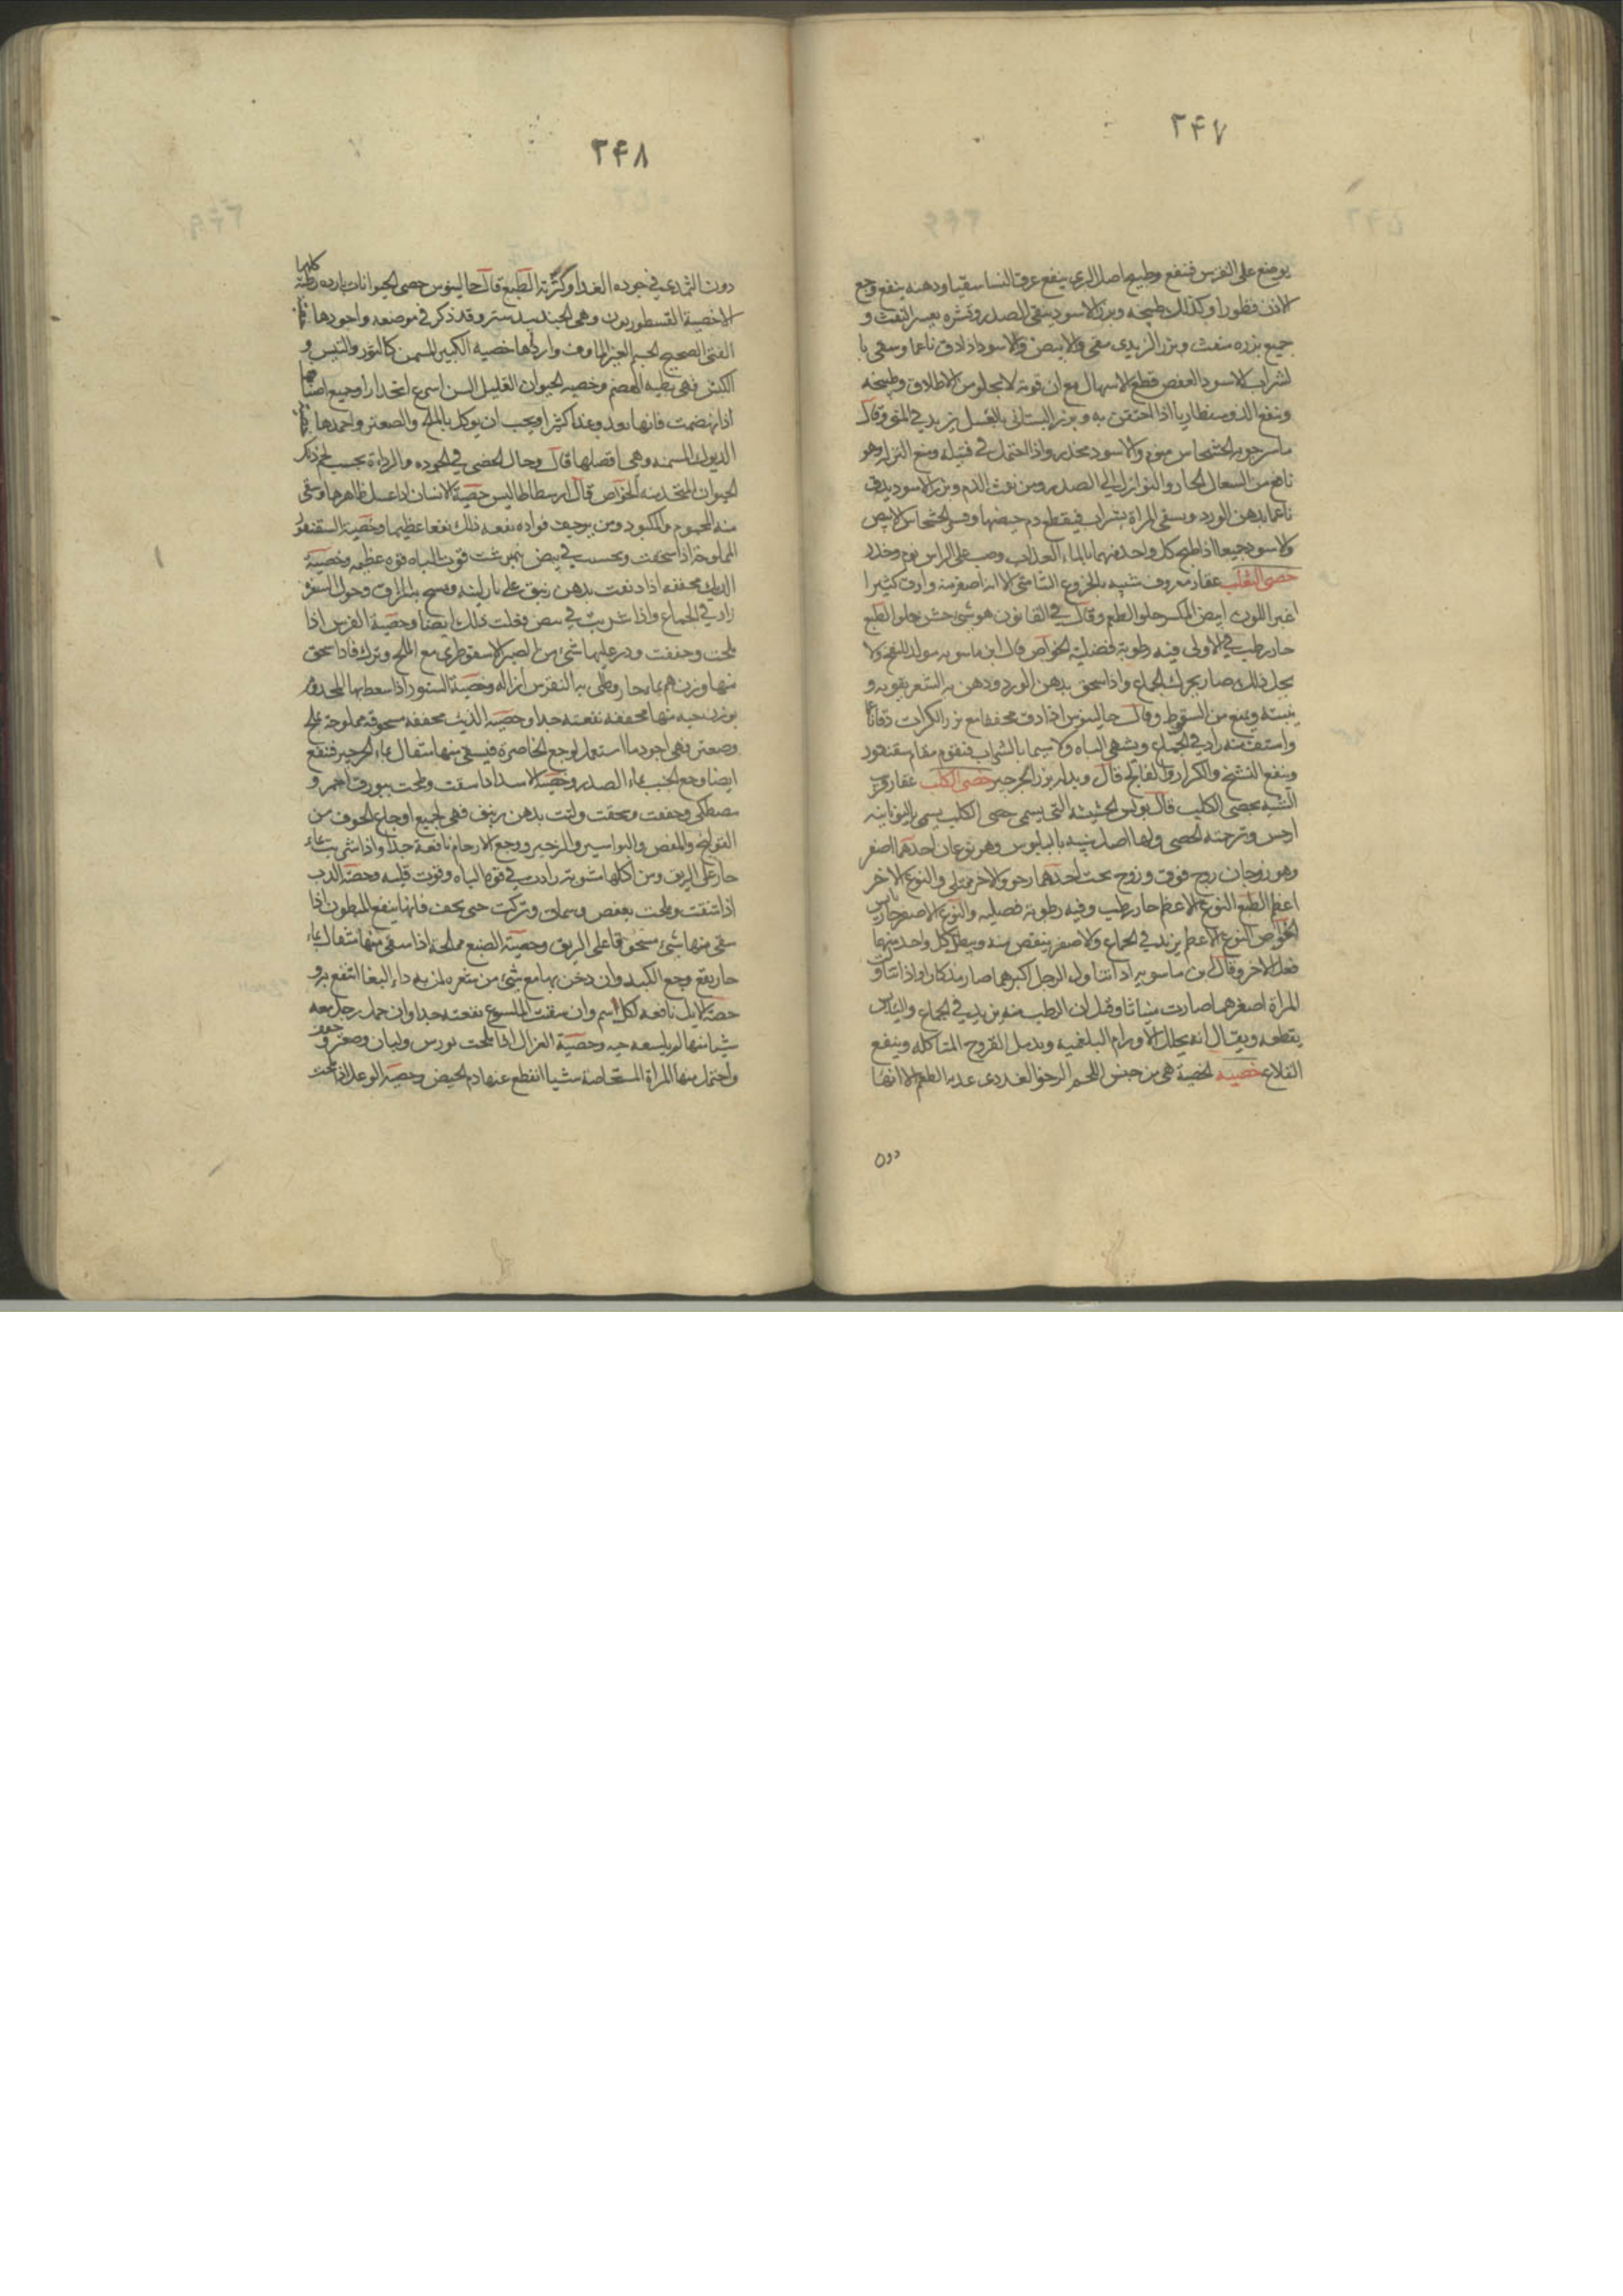 ٢٤٧
يوضع على النقرس فينفع وطبيخ اصل البرى ينفع عرق النسا سقيا ودهنه ينفع وجع
الاذن قطورا وكذلك طبيخه وبزر الاسود ينقى الصدر وقشره يعسر النفث و
جميع بزره منفث وبزر الزبدى مقى والابيض والاسود اذا دق ناعما وسقى با
لشراب الاسود العفص قطع الاسهال مع ان قوته لا يخلو من الاطلاق وطبيخه
وينفع الذوسنطاريا اذا احتقن به وبزر البستانى بالعسل يزيد فى المنى وقال
ماسرجويه الخشخاش منوم والاسود مخدر واذا احتمل فى فتيلة ومنع النزلة وهو
نافع من السعال الحار والنوازل الى الصدر ومن نفث الدم وبزر الاسود يدق
ناعما بدهن الورد ويسقى المراة بشراب فيقطع دم حيضها وقشر الخشخاش الابيض
والاسود جميعا اذا طبخ كل واحد منهما بالماء العذب وصب على الراس نوم وخدر
خصى الثعلب عقار معروف شبيه بالخروع الشامى الا انه اصغر منه وارق كثيرا
اغبر اللون ابيض المكسر حلو الطعم وقال فى القانون هو شى خشن حلو الطبع
حار رطب فى الاولى فيه رطوبة فضلية الخواص قال ابن ماسويه مولد للنفخ ولا
جل ذلك صار يحرك الجماع واذا سحق بدهن الورد ودهن به الشعر يقويه و
ينبته ويمنع من السقوط وقال جالينوس اذا دق مجففا مع بزر الكراث دقا ناعما
واستف منه زاد فى الجماع ويشهى الباه ولا سيما بالشراب فيقوم مقام سقنقور
وينفع التشنج والكزاز والفالج قال وبدله بزر الجرجير خصى الكلب عقار قريب
الشبه بخصى الكلب قال بولس الحشيشة التى يسمى خصى الكلب يسمى باليونانية
ارخس وترجمته الخصى ولها اصل شبيه بالبلبوس وهو نوعان احدهما اصغر
وهو زوجان زوج فوق وزوج تحت احدهما رخو والاخر ممتلى والنوع الاخر
اعظم الطبع النوع الاعظم حار رطب وفيه رطوبة فضليه والنوع الاصغر حار يابس
الخواص النوع الاعظم يزيد فى الجماع والاصغر ينقص منه ويبطل كل واحد منهما
فعل الاخر وقال بن ماسويه اذا تناول الرجل اكبرهما صار مذكارا واذا تناولت
المراة اصغرهما صارت مئناثا وقيل ان الرطب منه يزيد فى الجماع واليابس
يقطعه ويقال انه يحلل الاورام البلغمية ويدمل القروح المتاكله وينفع
القلاع خصيه الخصية هى من جنس اللحم الرخو الغددى عديم الطعم الا انها
دون
٢٤٨
دون الثدى فى جوده الغذا وكثرته الطبع قال جالينوس خصى الحيوانات بارده رطبة كلها
الا خصية القسطوريون وهى الجندبيدستر وقد ذكر فى موضعه واجودها
الفتى الصحيح الجسم الغير الماوف واردأها خصية الكبير المسن كالثور والتيس و
الكبش فهى بطيه الهضم وخصيه الحيوان القليل السن اسرع انحدارا وجميع اصنافها
اذا انهضمت فانها تغذو غذا كثيرا ويجب ان يوكل بالملح والصعتر واحمدها
الديوك المسمنه وهى افضلها قال وحال الخصى فى الجوده والرداءة بحسب لحم ذلك
الحيوان المتخذ منه الخواص قال ارسطاطاليس خصية الانسان اذا غسل ظاهرها وسقى
منه المحموم والمكبود ومن يرجف فواده نفعه ذلك نفعا عظيما وخصية السقنقور
المملوحة اذا سحقت وتحسيت فى بيض نيمرشت قوت الباه قوه عظيمه وخصية
الديك مجففه اذا ديفت بدهن زنبق على نار لينه ومسح بها المراق وحول السفرة
زاد فى الجماع واذا شربت فى بيض فعلت ذلك ايضا وخصية الفرس اذا
ملحت وجففت وذر عليها شى من الصبر الاسقوطرى مع الملح وترك فاذا سحق
منها وزن درهم بماء حار وطلى به النقرس ازاله وخصية السنور اذا سعط بها المجذوم
بوزن حبه منها مجففه نفعته جدا وخصيه الذيب مجففه مسحوقة مملوحة بملح
وصعتر وهى اجود ما استعمل لوجع الخاصره فيسقى منها مثقال بماء الجرجير فينفع
ايضا وجع الجنب بماء الصدر وخصية الاسد اذا شقت وملحت ببورق احمر و
مصطكى وجففت وسحقت ولتت بدهن زنبق فهى لجميع اوجاع الجوف من
القولنج والمغص والبواسير والزحير ووجع الارحام نافعة جدا واذا شربت بماء
حار على الريق ومن اكلها مشويه زادت فى قوه الباه وقوت قلبه وخصية الدب
اذا شقت وملحت بعفص وسماق وتركت حتى يجف فانها ينفع المبطون اذا
سقى منها شى مسحوقا على الريق وخصية الضبع مملحة اذا سقى منها مثقال بماء
حار نفع وجع الكبد وان دخن بها مع شى من شعره لمن به داء البغا انتفع به و
خصية الايل نافعه لكل سم وان سقيت الملسوع نفعته جدا وان حمل رجل معه
شيا منها لم يلسعه حيه وخصية الغزال اذا ملحت بورس ولبان وصعتر وجفف
واحتمل منها المراة المستحاضة شيا انقطع عنها دم الحيض وخصية الوعل اذا ملحت